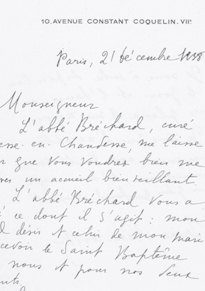 10, AVENUE CONSTANT COQUELIN. VIIᵉ
Paris, 21 décembre 1938
Monseigneur
L'abbé Bréchard, curé
en Chandesse, me laisse
que vous voudrez bien me
un accueil bienveillant
L'abbé Bréchard vous a
ce dont il s'agit : mon
désir et celui de mon mari
recevoir le Saint Baptême
nous et pour nos deux